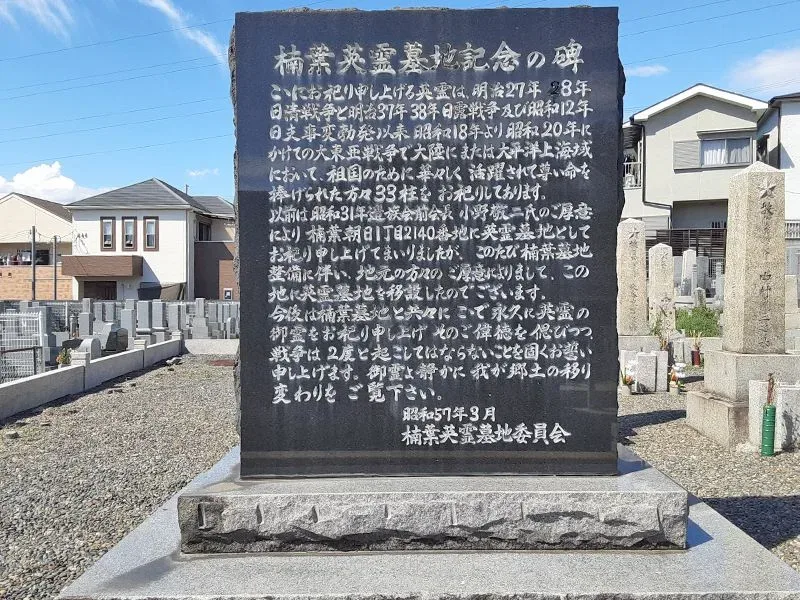 楠葉英霊墓地記念の碑
こゝにお祀り申し上げる英霊は、明治27年 28年
日清戦争と明治37年 38年日露戦争及び昭和12年
日支事変勃発以来 昭和18年より 昭和20年に
かけての大東亜戦争で大陸にまたは太平洋上海域
において、祖国のために華々しく 活躍されて尊い命を
捧げられた方々33柱を お祀りしてあります。
以前は昭和31年遺族会前会長 小野敬二氏のご厚意
により 楠葉朝日1丁目2140番地に英霊墓地として
お祀り申し上げてまいりましたが、このたび楠葉墓地
整備に伴い、地元の方々のご厚意によりまして、この
地に英霊墓地を移設したのでございます。
今後は楠葉墓地と共々に こゝで永久に英霊の
御霊をお祀り申し上げ そのご偉徳を偲びつつ
戦争は2度と起こしてはならないことを固くお誓い
申し上げます。御霊よ静かに 我が郷土の移り
変わりを ご覧下さい。
昭和57年3月
楠葉英霊墓地委員会